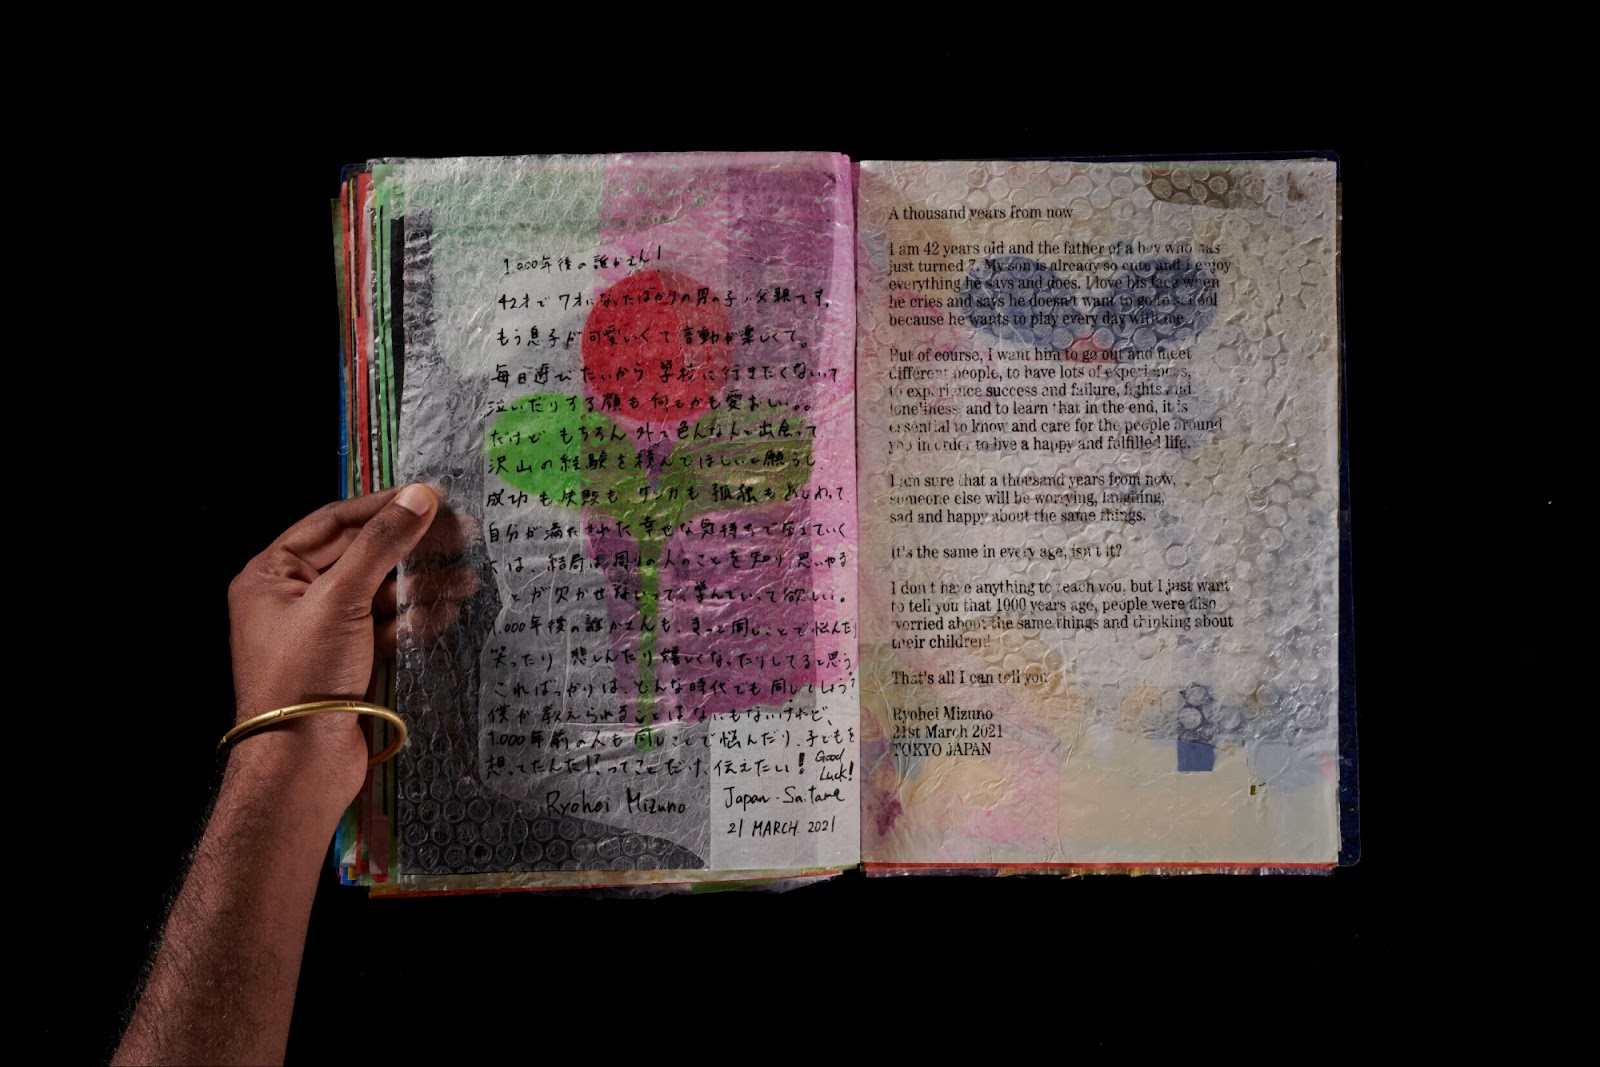 1,000年後の誰かさん!
42才で7才になったばかりの男の子の父親です。
もう息子が可愛いくて言動が楽しくて。
毎日遊びたいから学校に行きたくないって
泣いたりする顔も何もかも愛おしい。。
だけど、もちろん外で色んな人と出会って
沢山の経験を積んでほしいと願うし、
成功も失敗も、ケンカも孤独もあじわって
自分が満たされた幸せな気持ちで生きていく
には、結局は周りの人のことを知り思いやる
ことが欠かせないって、学んでいって欲しい。
1,000年後の誰かさんも、きっと同じことで悩んだり
笑ったり、悲しんだり嬉しくなったりしてると思う。
こればっかりは、どんな時代でも同じでしょう?
僕が教えられることはなにもないけれど、
1,000年前の人も同じことで悩んだり、子どもを
想ってたんだ!?ってことだけ、伝えたい! Good Luck!
Ryohei Mizuno
Japan. Saitama
21 MARCH. 2021
A thousand years from now
I am 42 years old and the father of a boy who has
just turned 7. My son is already so cute and I enjoy
everything he says and does. I love his face when
he cries and says he doesn't want to go to school
because he wants to play every day with me.
But of course, I want him to go out and meet
different people, to have lots of experiences,
to experience success and failure, fights and
loneliness, and to learn that in the end, it is
essential to know and care for the people around
you in order to live a happy and fulfilled life.
I am sure that a thousand years from now,
someone else will be worrying, laughing,
sad and happy about the same things.
It's the same in every age, isn't it?
I don't have anything to teach you, but I just want
to tell you that 1000 years ago, people were also
worried about the same things and thinking about
their children!
That's all I can tell you
Ryohei Mizuno
21st March 2021
TOKYO JAPAN